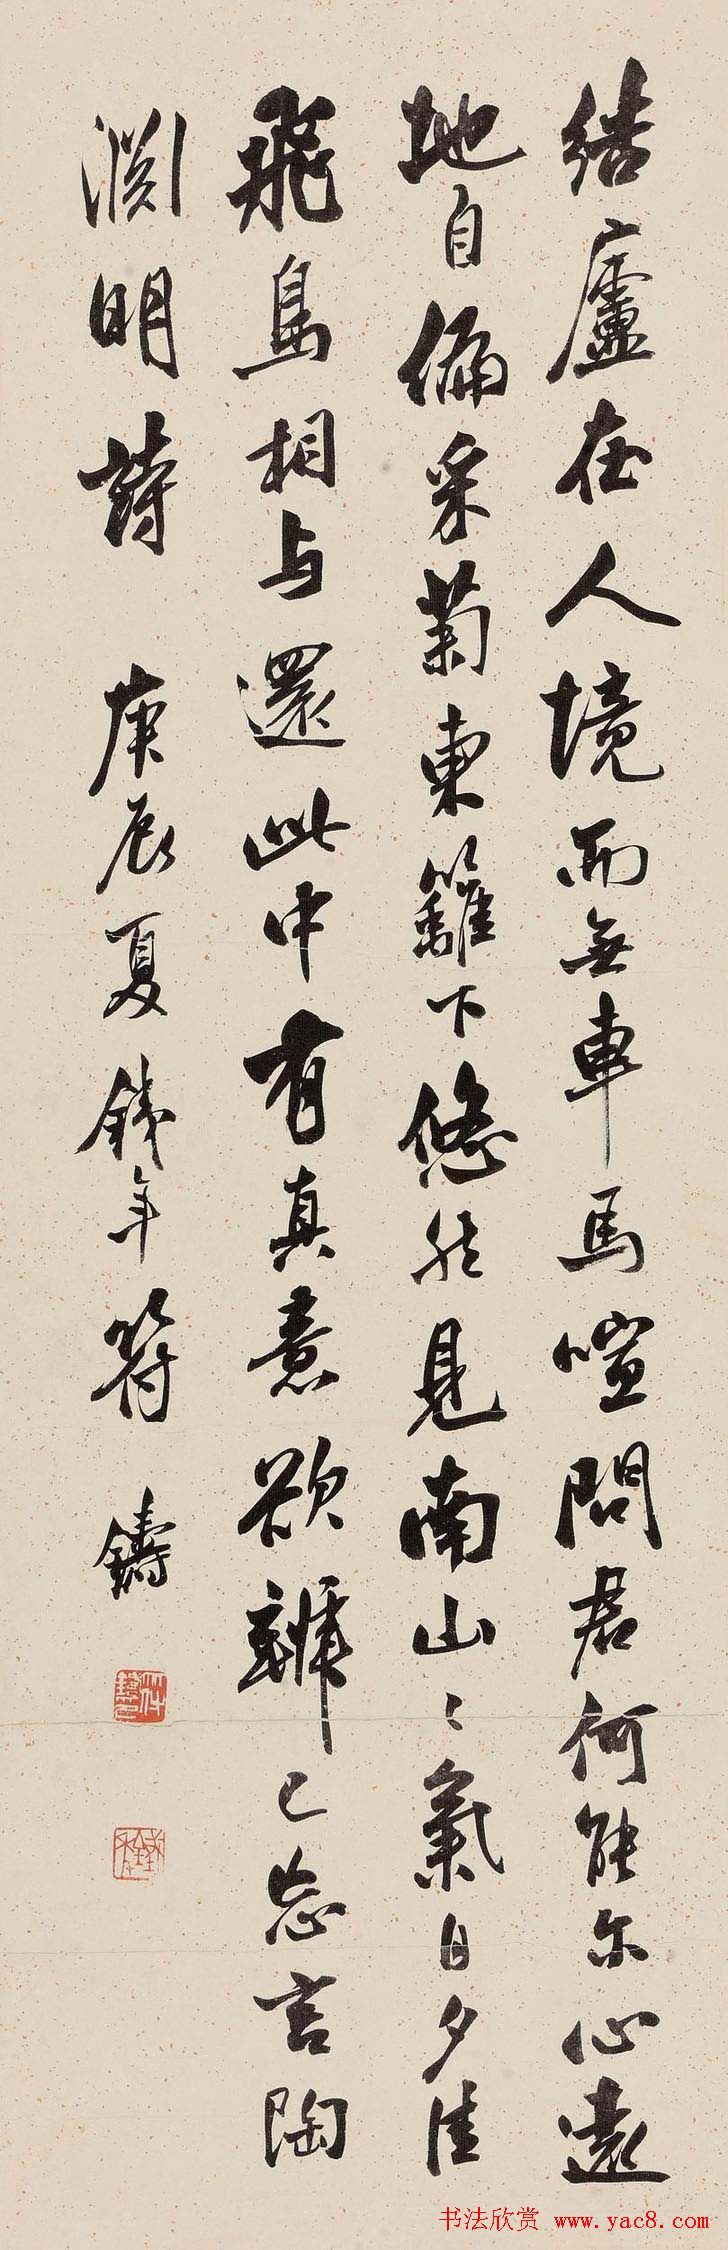 結廬在人境而無車馬喧問君何能尔心遠
地自偏采菊東籬下悠然見南山〻氣日夕佳
飛鳥相与還此中有真意欲辨已忘言陶
淵明詩 庚辰夏鐵年符鑄
符鑄之印
鐵年
书法欣赏 www.yac8.com